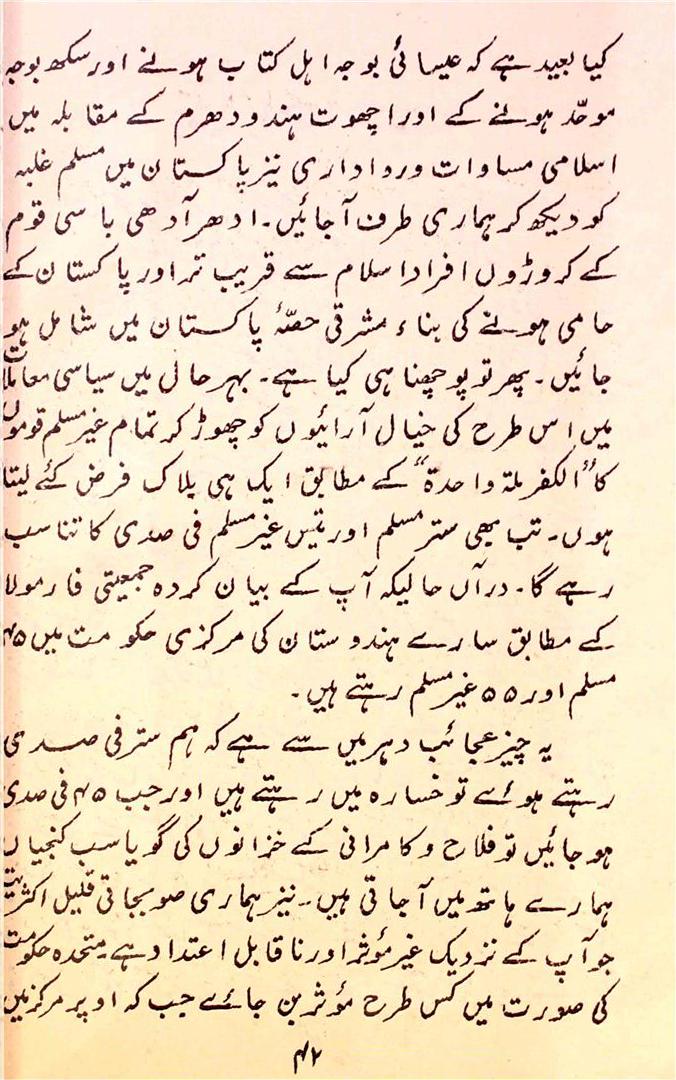 کیا بعید ہے کہ عیسائی بوجہ اہل کتاب ہونے اور سکھ بوجہ
موحّد ہونے کے اور اچھوت ہندو دھرم کے مقابلہ میں
اسلامی مساوات و رواداری نیز پاکستان میں مسلم غلبہ
کو دیکھ کر ہماری طرف آ جائیں۔ ادھر آدھی باسی قوم
کے کروڑوں افراد اسلام سے قریب تر اور پاکستان کے
حامی ہونے کی بناء مشرقی حصّۂ پاکستان میں شامل ہو
جائیں۔ پھر تو پوچھنا ہی کیا ہے۔ بہر حال میں سیاسی معاملات
میں اس طرح کی خیال آرائیوں کو چھوڑ کر تمام غیر مسلم قوموں
کا ”الکفر ملۃ واحدۃ“ کے مطابق ایک ہی بلاک فرض کئے لیتا
ہوں۔ تب بھی ستر مسلم اور تیس غیر مسلم فی صدی کا تناسب
رہے گا۔ درآں حالیکہ آپ کے بیان کردہ جمعیتی فارمولا
کے مطابق سارے ہندوستان کی مرکزی حکومت میں ۴۵
مسلم اور ۵۵ غیر مسلم رہتے ہیں۔
یہ چیز عجائب دہر میں سے ہے کہ ہم ستر فی صدی
رہتے ہوئے تو خسارہ میں رہتے ہیں اور جب ۴۵ فی صدی
ہو جائیں تو فلاح و کامرانی کے خزانوں کی گویا سب کنجیاں
ہمارے ہاتھ میں آ جاتی ہیں۔ نیز ہماری صوبجاتی قلیل اکثریت
جو آپ کے نزدیک غیر مؤثر اور ناقابل اعتداد ہے۔ متحدہ حکومت
کی صورت میں کس طرح مؤثر بن جائے جب کہ اوپر مرکز میں
۴۲